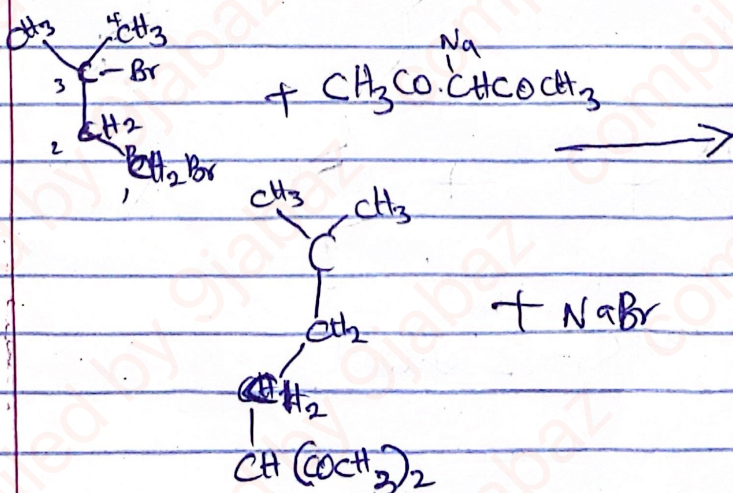 CH3 4CH3
3 C-Br
2 CH2
1 CH2Br
+ CH3CO.CHCOCH3
Na
CH3 CH3
C
CH2
CH2
CH(COCH3)2
+ NaBr